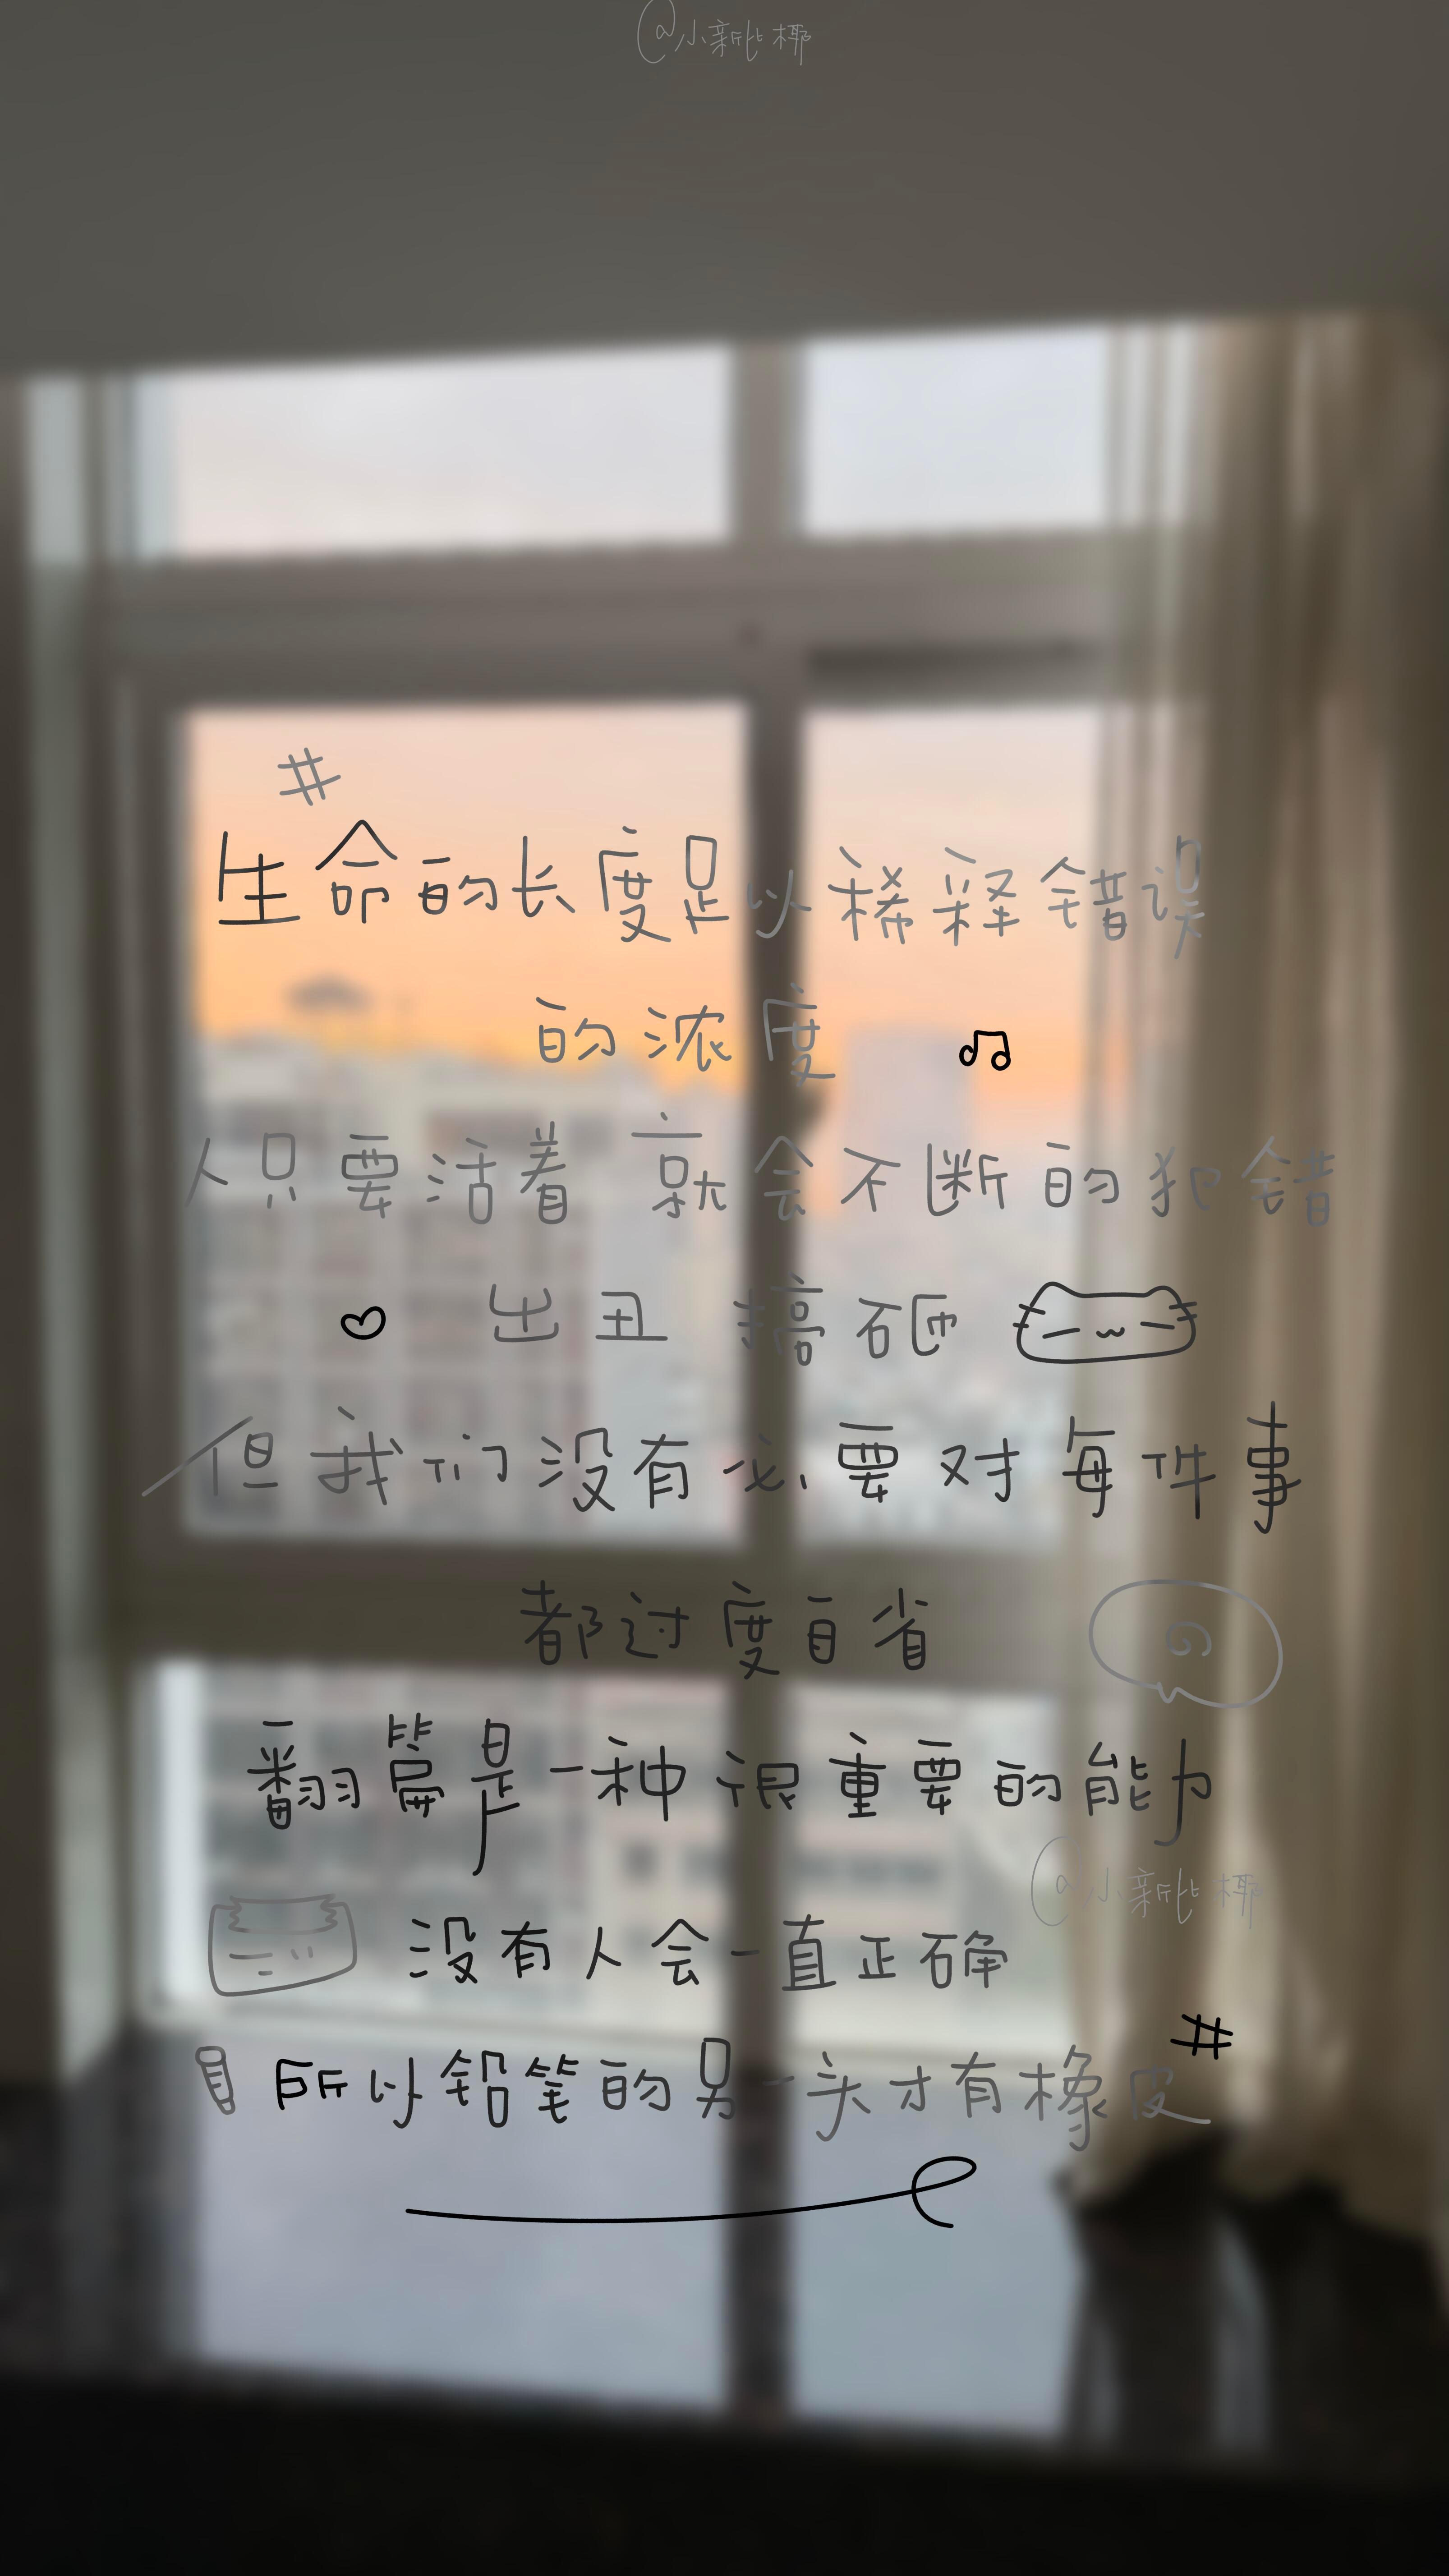 @小新吡椰
#
生命的长度足以稀释错误
的浓度
人只要活着 就会不断的犯错
出丑 搞砸
但我们没有必要对每件事
都过度自省
翻篇是一种很重要的能力
@小新吡椰
没有人会一直正确
#
所以铅笔的另一头才有橡皮